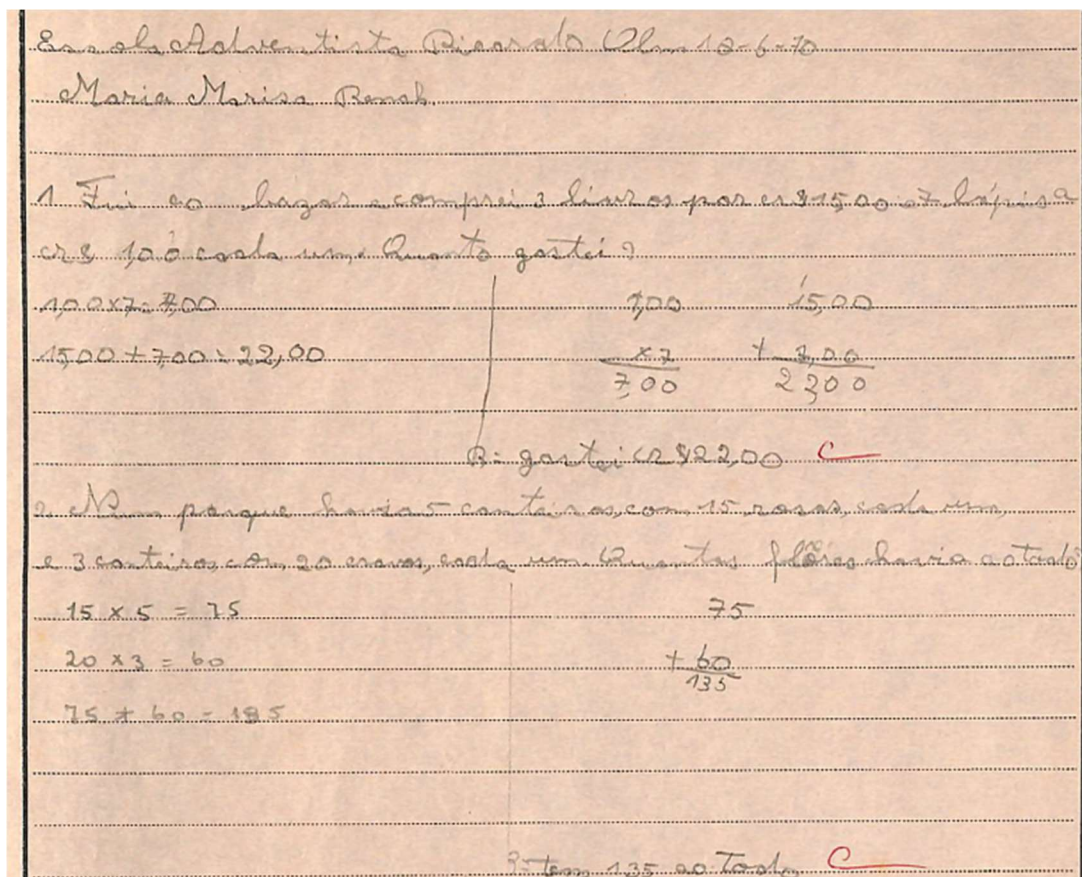 Escola Adventista Ricardo Olm 12-6-70
Maria Marisa
1 Fui ao bazar e comprei 3 livros por cr$ 15,00 e 7 lápis a
cr$ 1,00 cada um. Quanto gastei?
1,00 x 7 = 7,00 1,00 15,00
15,00 + 7,00 = 22,00 x 7 + 7,00
7,00 22,00
R= gastei cr $ 22,00 C
2. Num parque havia 5 canteiros, com 15 rosas, cada um,
e 3 canteiros, com 20 cravos, cada um. Quantas flôres havia ao todo?
15 x 5 = 75 75
20 x 3 = 60 + 60
135
75 + 60 = 135
R= tem 135 ao todo C